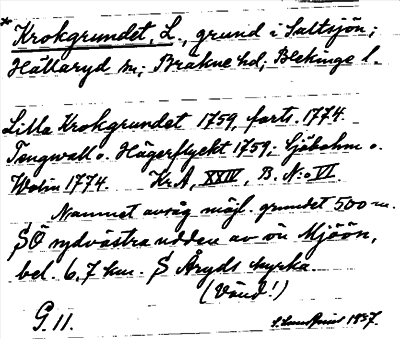 *Krokgrundet, L., grund i Saltsjön;
Hällaryd sn; Bräkne hd; Blekinge l.
Lilla Krokgrundet 1759, forts. 1774.
Tengwall o. Hägerflyckt 1759; Sjöbohm o.
Wolin 1774. Kr.A, XXIV, B. N:o VI.
Namnet avsåg möjl. grundet 500 m.
SÖ sydvästra udden av ön Mjöön,
bel. 6,7 km. S Åryds kyrka.
(Vänd!)
G. 11. 1937.